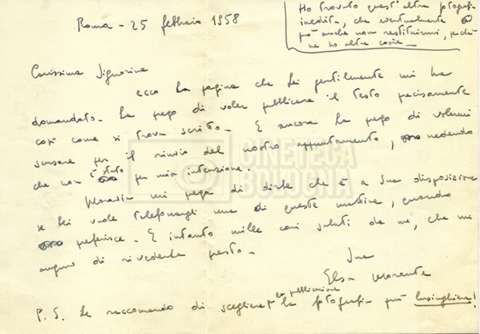 Roma - 25 febbraio 1958
Ho trovato quest'altra fotografia
inedita, che eventualmente
può anche non restituirmi, perché
ne ho altre copie -
Carissima Signorina
ecco la pagina che Lei gentilmente mi ha
domandato. La prego di voler pubblicare il testo precisamente
così come si trova scritto. E ancora la prego di volermi
scusare per il rinvio del nostro appuntamento, vedendo
che non è stato per mia intenzione.
mi prega di dirLe che è a Sua disposizione
se Lei vuole telefonargli una di queste mattine, quando
preferisce. E intanto mille cari saluti da me, che mi
auguro di rivederLa presto.
Sua
Elsa Morante
P.S. Le raccomando di scegliere per la pubblicazione la fotografia più lusinghiera!
CINETECA
BOLOGNA